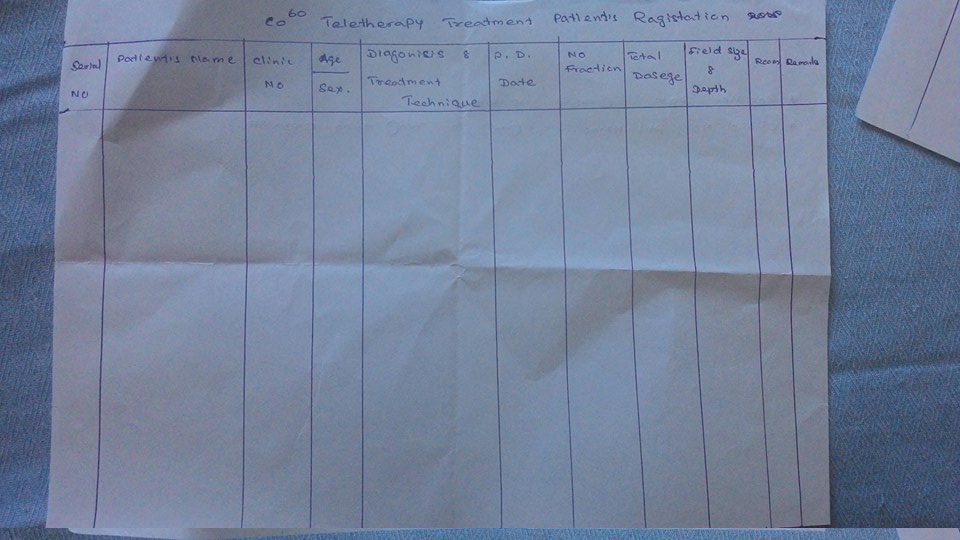 Co60 Teletherapy Treatment Patientis Ragistation
Serial NO
Patientis Name
Clinic NO
Age
Sex.
Diagonisis &
Treatment
Technique
P. D.
Date
No
Fraction
Total
Dosege
Field Size
&
Depth
Room
Remarks